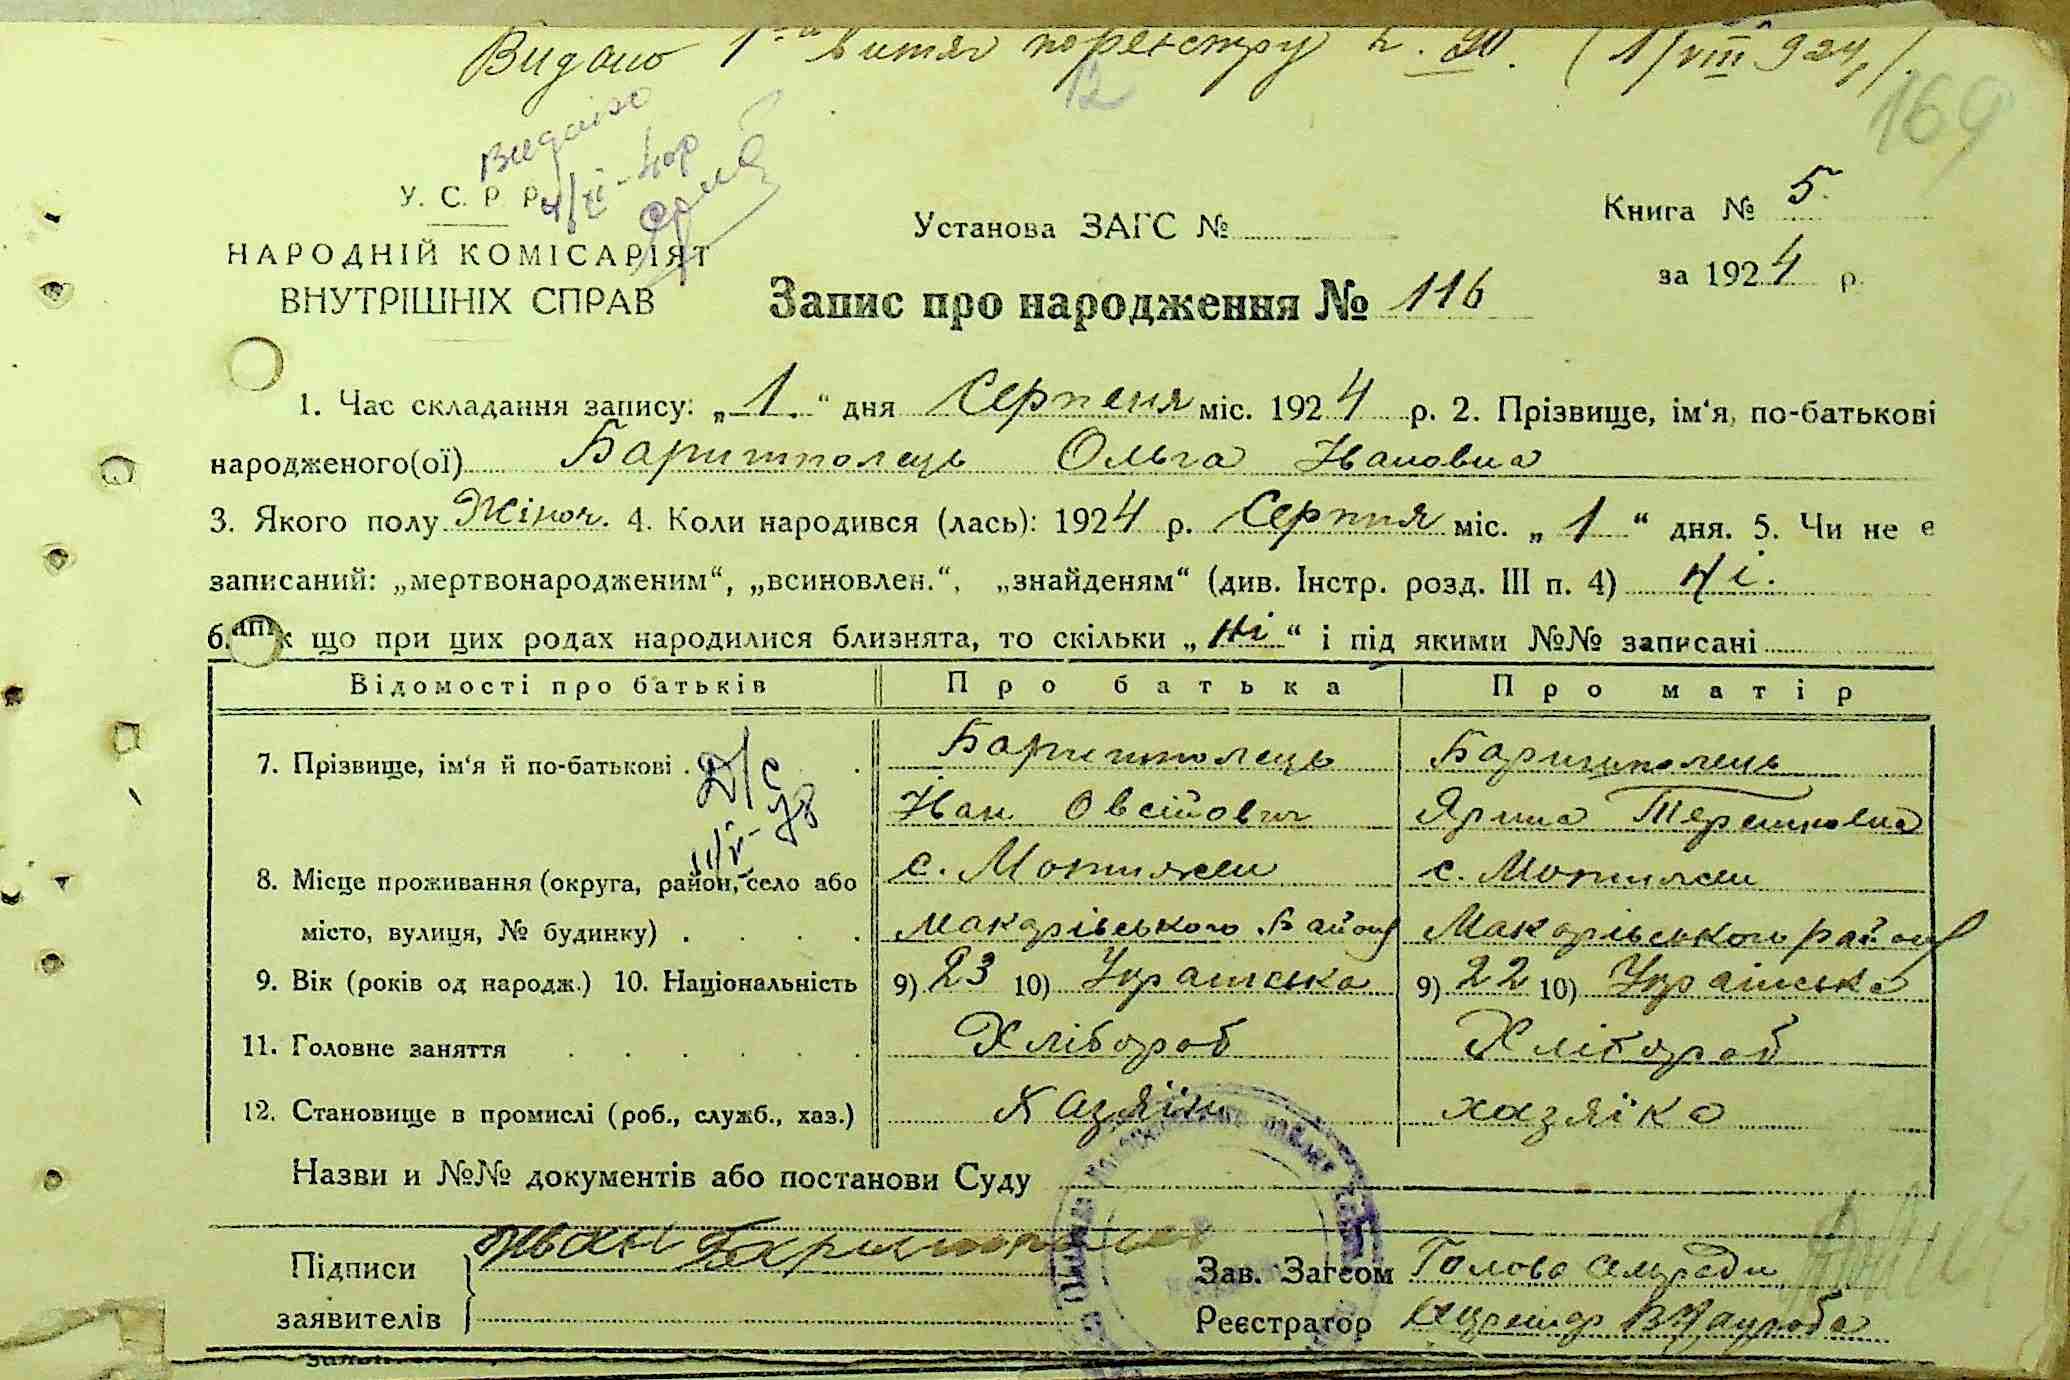 Видано 1 витяг по реєстру №. 20. (1/VIII 924р).
12
169
Видано
4/XI-40р
У. С. Р. Р.
НАРОДНІЙ КОМІСАРІЯТ
ВНУТРІШНІХ СПРАВ
Установа ЗАГС №
Книга № 5.
за 1924 р.
Запис про народження № 116
1. Час складання запису: „1.“ дня Серпеня міс. 1924 р. 2. Прізвище, ім‘я, по-батькові
народженого(ої) Баришполець Ольга Івановна
3. Якого полу Жіноч. 4. Коли народився (лась): 1924 р. Серпня міс. „1“ дня. 5. Чи не є
записаний: „мертвонародженим“, „всиновлен.“, „знайденям“ (див. Інстр. розд. III п. 4) Ні.
6. Як що при цих родах народилися близнята, то скільки „Ні“ і під якими №№ записані
Відомості про батьків Про батька Про матір
7. Прізвище, ім‘я й по-батькові . Баришполець Баришполець
Іван Овсійович Ярина Терешковна
8. Місце проживання (округа, район, село або с. Мотижин с. Мотижин
місто, вулиця, № будинку) . . . . Макарівського Району Макарівського району
9. Вік (років од народж.) 10. Національність 9) 23 10) Украінська 9) 22 10) Украінська
11. Головне заняття . . . . . . Хлібороб Хлібороб
12. Становище в промислі (роб., служб., хаз.) Хазяїн хазяїка
Назви и №№ документів або постанови Суду
Підписи заявителів Иван Баришполец
Зав. Загсом Голова сільради
Реєстратор Секретар